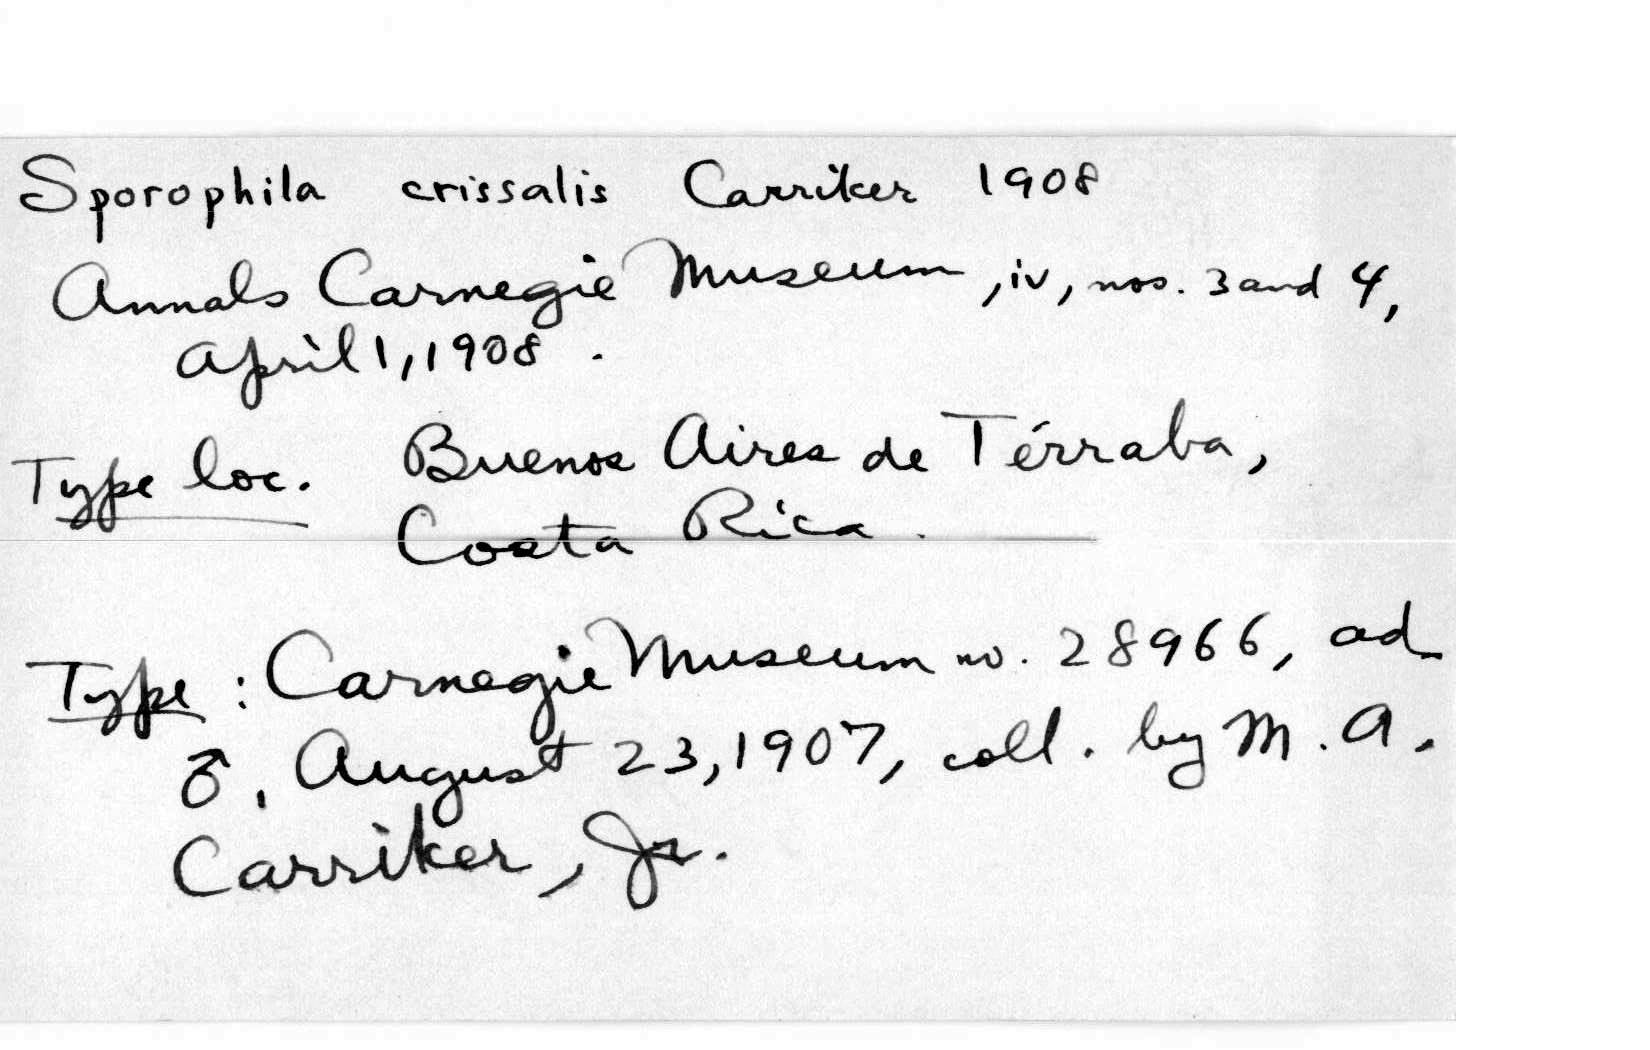 Sporophila crissalis Carriker 1908
Annals Carnegie Museum, iv, nos. 3 and 4,
April 1, 1908.
Type loc. Buenos Aires de Térraba,
Costa Rica.
Type: Carnegie Museum no. 28966, ad
♂, August 23, 1907, coll. by M. A.
Carriker, Jr.